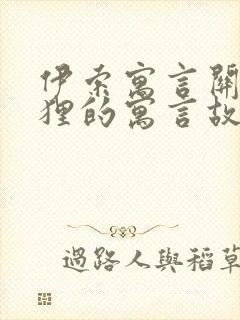 伊索寓言關
狸的寓言故
過路人與稻草